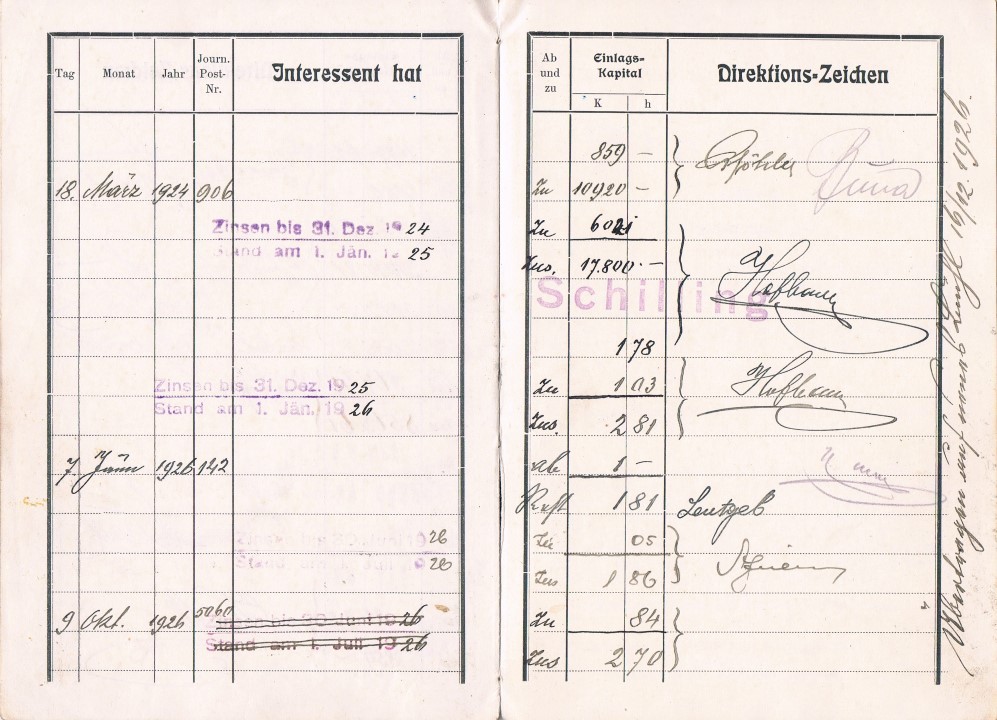 Tag Monat Jahr Journ. Post-Nr. Interessent hat
Ab und zu Einlags-Kapital K h Direktions-Zeichen
859 —
18. März 1924 906 Zu 10920 —
Zinsen bis 31. Dez. 19 24 Zu 6021
Stand am 1. Jän. 19 25 Zus. 17.800 · —
Schilling
Hofbauer
1 78
Zinsen bis 31. Dez. 19 25 Zu 1 03 Hofbauer
Stand am 1. Jän. 19 26 Zus. 2 81
7. Jänn 1926 142 ab 1 —
Rest 1 81
Zinsen bis 30. Juni 19 26 Zu 05
Stand am 1. Juli 19 26 Zus 1 86
9 Okt. 1926 5060 Zinsen bis 30 Juni 19 26 Zu 84
Stand am 1. Juli 19 26 Zus 2 70
Übertragen auf 16/12. 1926.